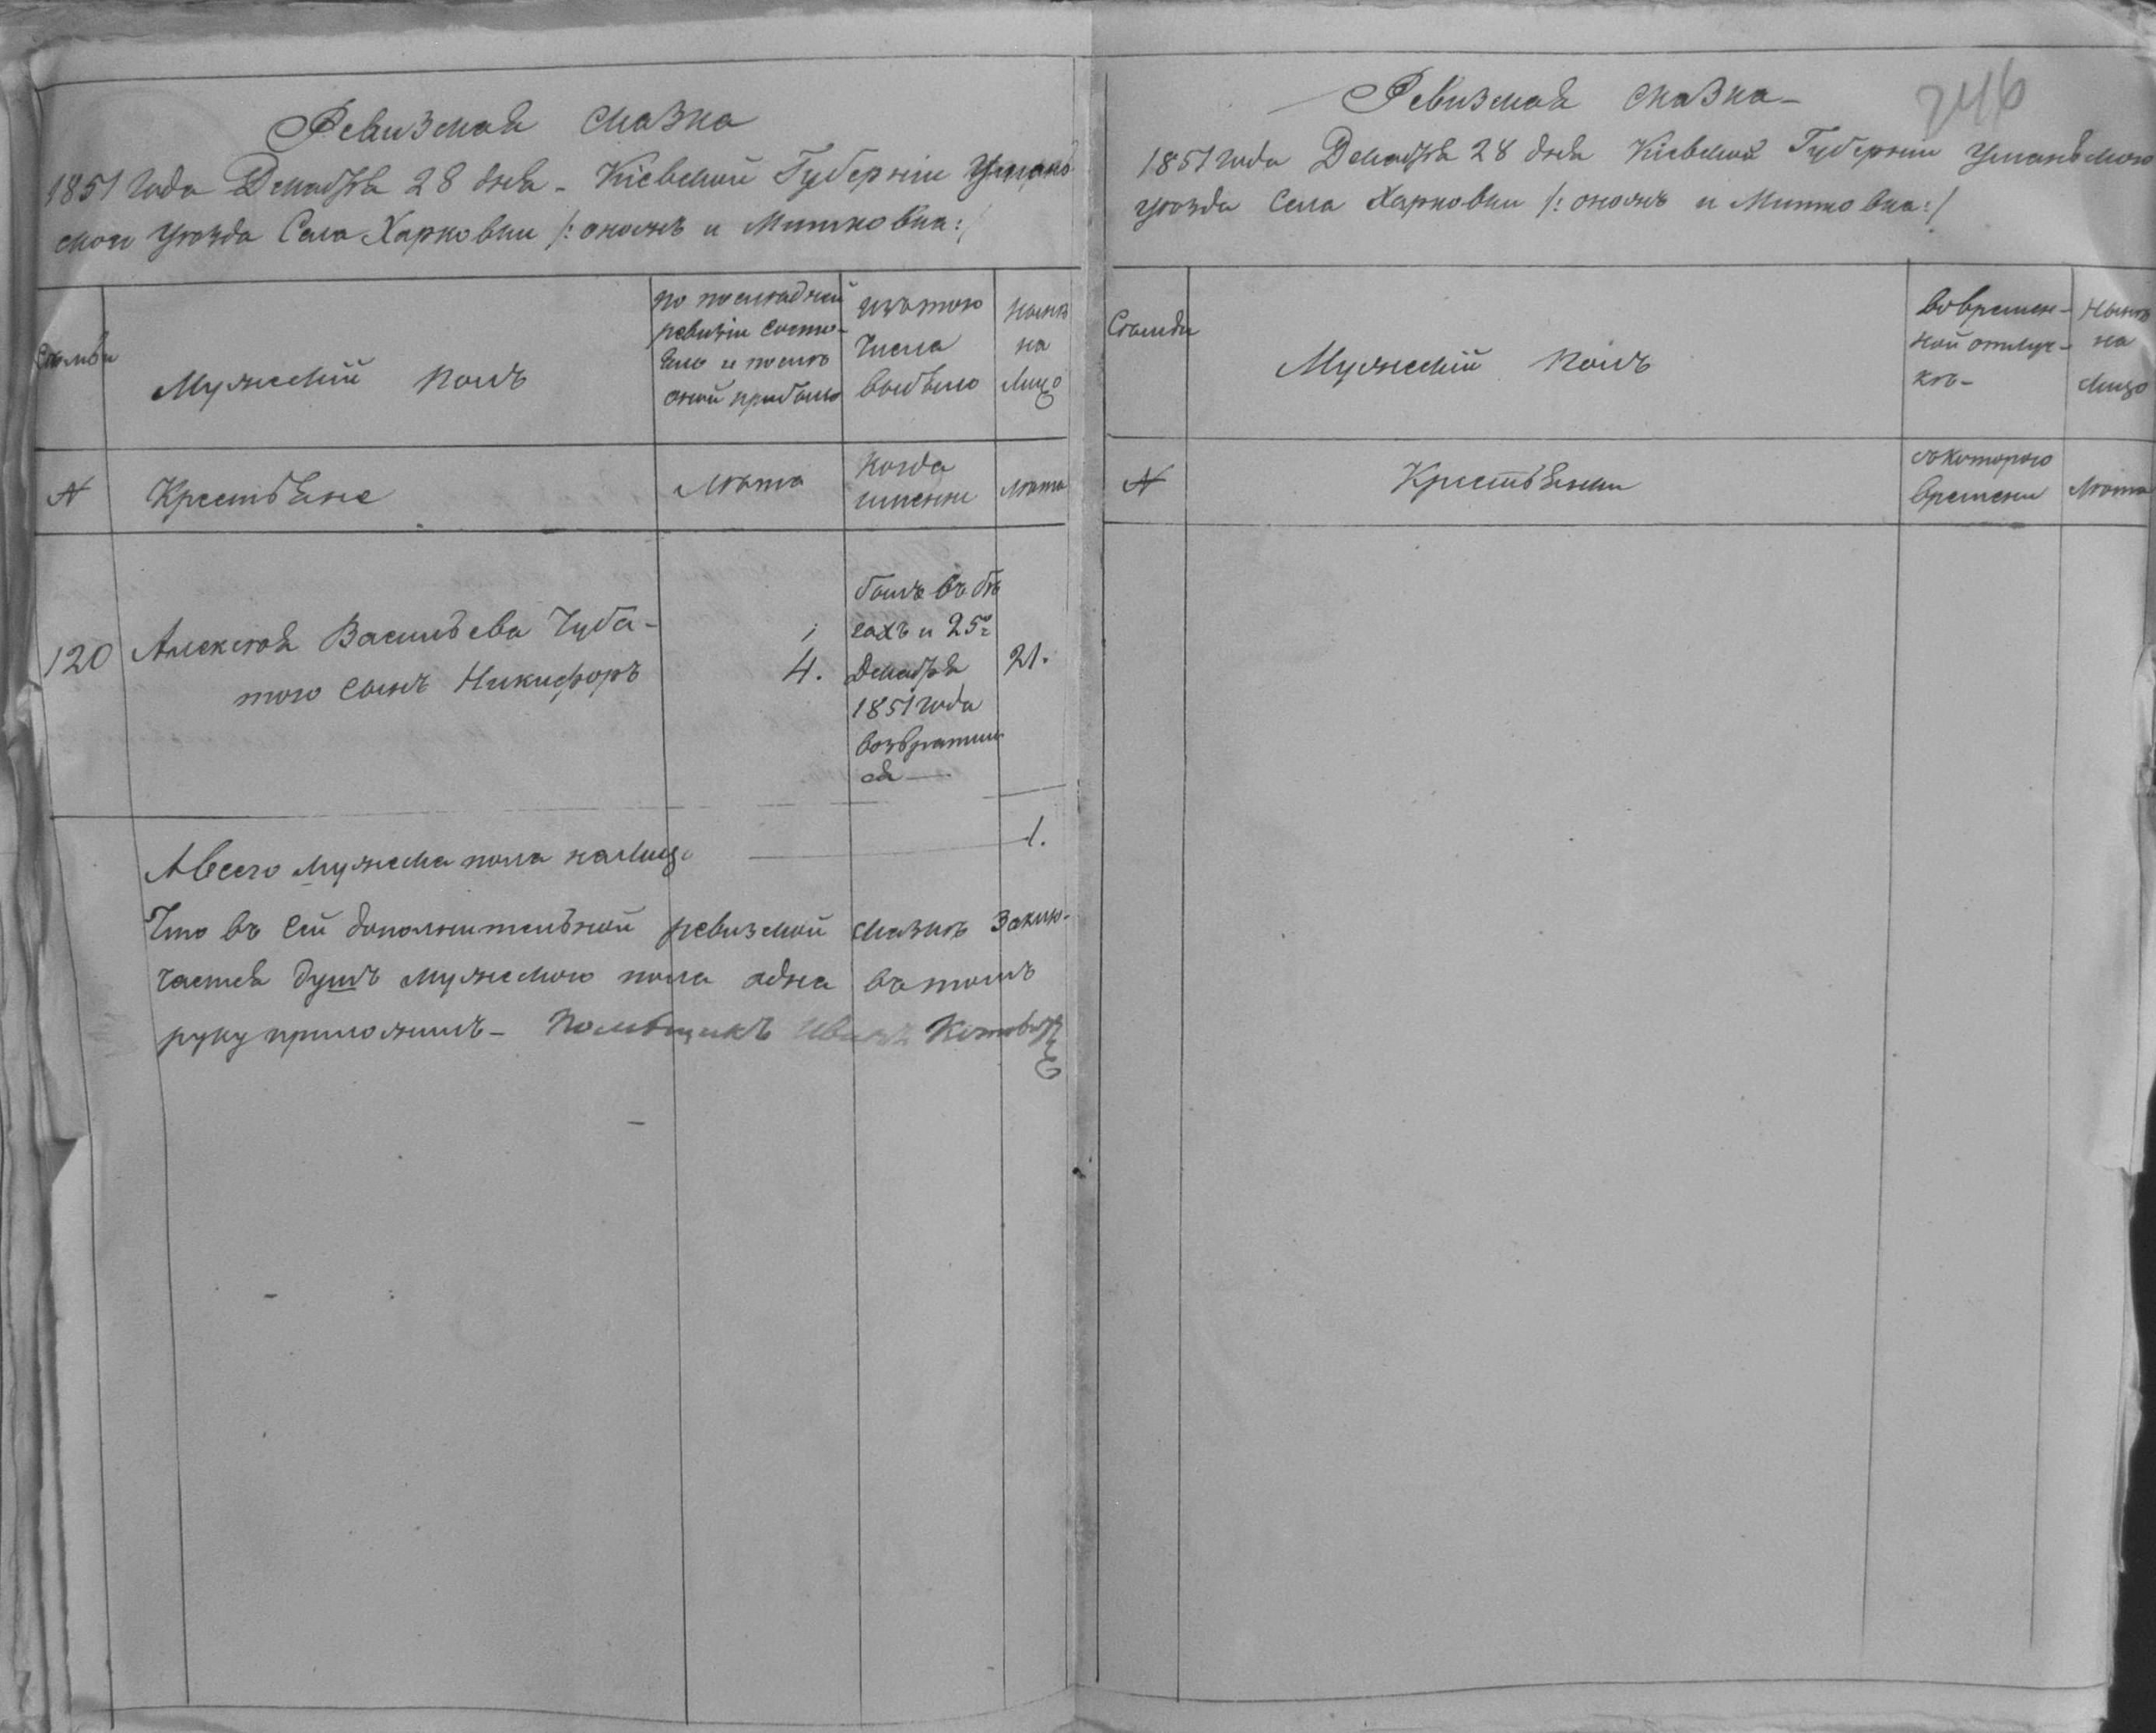 Ревизская сказка
1851 года Декабря 28 дня - Кіевской Губерніи Умань
ского Уѣзда Села Харковки /: оножъ и Митковка :/
Мужескій полъ
по послѣдней
ревизіи состо-
яло и послѣ
оной прибыло
изътого
числа
выбыло
нынѣ
на
лицо
N
Крестьяне
лѣта
когда
именно
лѣта
120
Алексѣя Васильева Чуба-
того сынъ Никифоръ
4.
былъ въ бѣ
гахъ и 25го
Декабря
1851 года
возвратил
ся
21.
А всего мужеска пола налицо
1.
Что въ сей дополнительной ревизской сказкѣ заклю-
чается душъ мужеского пола одна въ томъ
руку приложилъ - Помѣщикъ Иванъ
246
Ревизская сказка -
1851 года Декабря 28 дня Кіевской Губерніи Уманьского
уѣзда Села Харковки /: оножъ и Митковка :/
Мужескій полъ
вовремен-
ной отлуч-
кѣ -
Нынѣ
на
лицо
N
Крестьяне
съкоторого
времени
лѣта